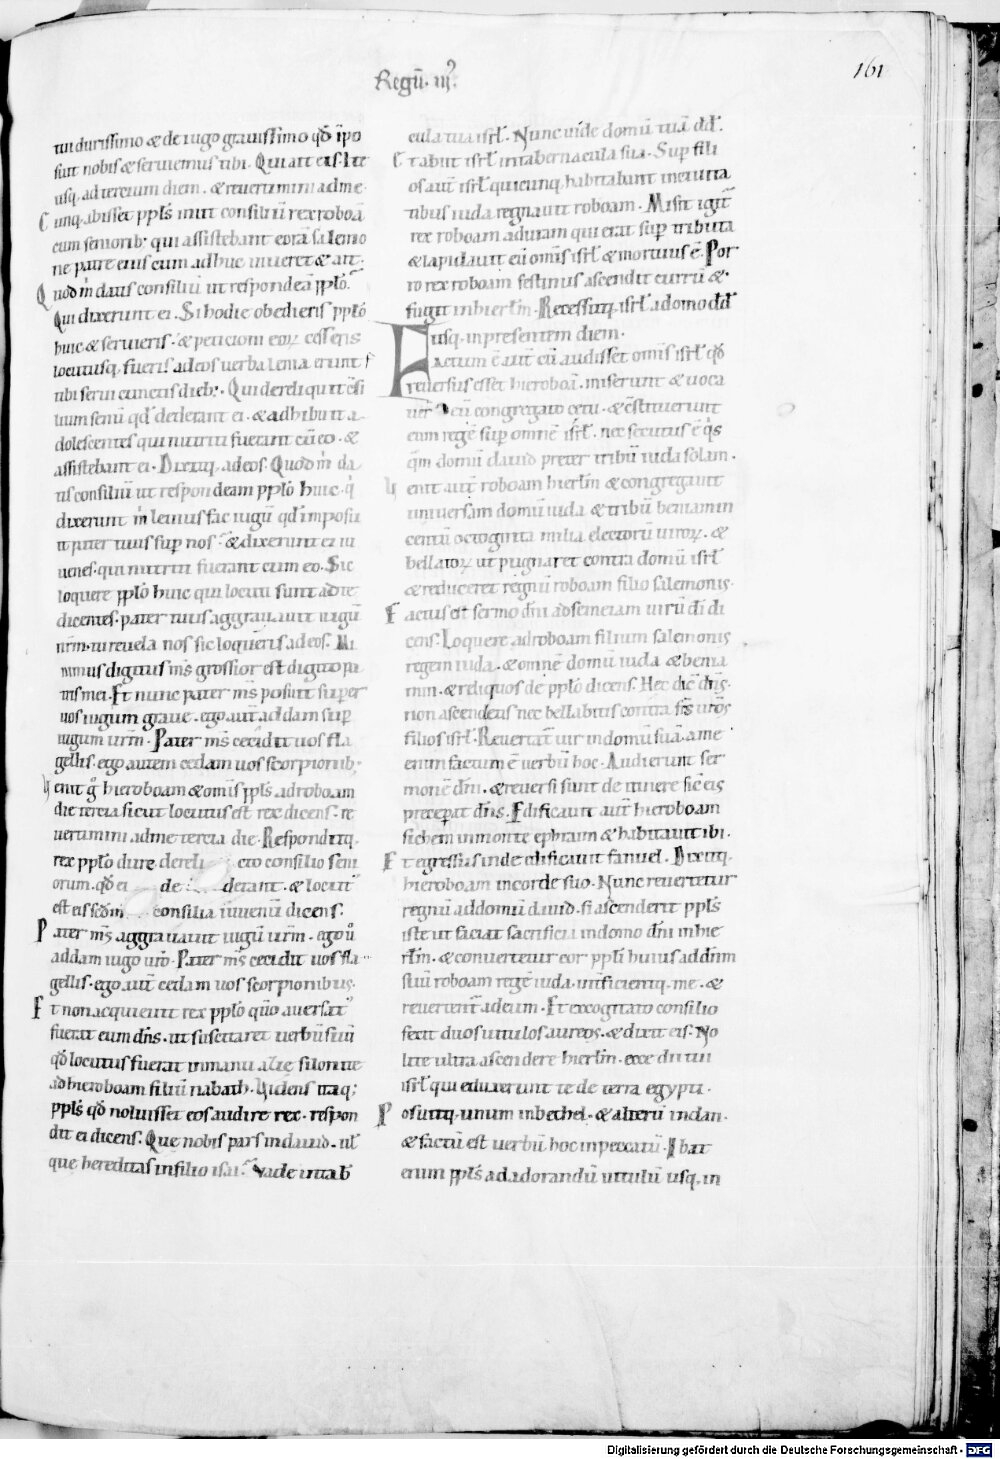 Regũ. iii.
161
tui durissimo & de iugo grauissimo qđ īpo
suit nobis & seruiemus tibi. Qui ait eis. Ite
usq. ad tercium diem. & reuertimini ad me.
Cunq. abisset ppłs iniit consiliū rex roboā
cum seniorib; qui assistebant corā salemo
ne patre eius cum adhuc uiueret & ait.
Quod m̄ datis consiliū ut respondeā pplo.
Qui dixerunt ei. Si hodie obedieris pplo
huic & servieris. & peticioni eoꝝ cesseris
locutusq. fueris ad eos uerba lenia erunt
tibi serui cunctis dieb;. Qui dereliquit cōsi
lium senū qđ dederant ei. & adhibuit a
dolescentes qui nutriti fuerant cū eo. &
assistebant ei. Dixitq. ad eos. Quod m̄ da
tis consiliū ut respondeam pplo huic. q̇
dixerunt m̄ leuius fac iugū qđ imposu
it pater tuus sup nos. & dixerunt ei iu
uenes. qui nutriti fuerant cum eo. Sic
loquere pplo huic qui locuti sunt ad te
dicentes. pater tuus aggrauauit iugū
nr̄m. tu reuela nos. sic loqueris ad eos. Mi
nimus digitus ms̄ grossior est digito pa
tris mei. Et nunc pater ms̄ posuit super
uos iugum graue. ego aut̄ addam sup
iugum urm̄. Pater ms̄ cecidit uos fla
gellis. ego autem cedam uos scorpionib;
Uenit g̊ hieroboam & omīs ppłs ad roboam
die tercia sicut locutus est rex dicens. re
uertimini ad me tercia die. Responditq.
rex pplo dure. dereli cto consilio seni
orum. qđ ei de derant. & locut
est eis sedm̄ consilia iuuenū dicens.
Pater ms̄ aggrauauit iugū urm̄. ego u̅
addam iugo uro. Pater ms̄ cecidit uos fla
gellis. ego aut̄ cedam uos scorpionibus.
Et non acquieuit rex pplo qūo auersat
fuerat eum dn̄s. ut suscitaret uerbū suū
qđ locutus fuerat in manu silonite
ad hieroboam filiū nabath. Uidens itaq;
ppłs qđ noluisset eos audire rex. respon
dit ei dicens. Que nobis pars in dauid. ul̄
que hereditas in filio isai. Vade in tab
cula tua isrł. Nunc uide domū tuā dd̄.
Et abiit isrł in tabernacula sua. Sup fili
os aut̄ isrł quicunq. habitabant in ciuita
tibus iuda regnauit roboam. Misit igit̄
rex roboam aduram qui erat sup tributa
& lapidauit eū omīs isrł & mortuus ē. Por
ro rex roboam festinus ascendit currū &
fugit in hierłm. Recessitq. isrł a domo dd̄
usq. in presentem diem.
Factum ē aut̄ cū audisset omīs isrł qđ
reuersus esset hieroboā. miserunt & uoca
uer̄ eū congregato cetu. & cōstituerunt
eum regē sup omnē isrł. nec secutus ē q̇s
q̄m domū dauid preter tribū iuda solam.
Uenit aut̄ roboam hierłm & congregauit
uniuersam domū iuda & tribū beniamin
centū octoginta milia electorū uiroꝝ. &
bellatoꝝ ut pugnaret contra domū isrł
& reduceret regnū roboam filio salemonis.
Factus est sermo dn̄i ad semeiam uirū dī di
cens. Loquere ad roboam filium salemonis
regem iuda. & omnē domū iuda & benia
min. & reliquos de pplo dicens. Hec dic̄ dn̄s.
non ascendetis nec bellabitis contra frs̄ uros̄
filios isrł. Reuertat̄ uir in domū suā. a me
enim factum ē uerbū hoc. Audierunt ser
monē dn̄i. & reuersi sunt de itinere sic̄ eis
preceperat dn̄s. Edificauit aut̄ hieroboam
sichem in monte ephraim & habitauit ibi.
Et egressus inde edificauit fanuel. Dixitq.
hieroboam in corde suo. Nunc reuertetur
regnū ad domū dauid. si ascenderit ppłs
iste ut faciat sacrificia in domo dn̄i in hie
rłm. & conuertetur cor ppłi huius ad dn̄m
suū roboam regē iuda. int̄ficientq. me. &
reuertent̄ ad eum. Et excogitato consilio
fecit duos uitulos aureos. & dixit eis. No
lite ultra ascendere hierłm. ecce dii tui
isrł. qui eduxerunt te de terra egypti.
Posuitq. unum in bethel. & alterū in dan.
& factū est uerbū hoc in peccatū. Ibat
enim ppłs ad adorandū uitulū usq. in
Digitalisierung gefördert durch die Deutsche Forschungsgemeinschaft - DFG